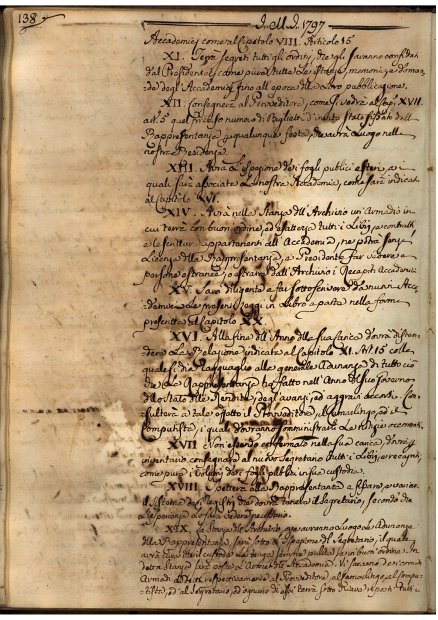 138
I. M. I. 1797
Accademici come al Capitolo VIII. Articolo 15
XI. Terrà segreti tutti gli ordini, che gli saranno confidati
dal Presidente, come pure tutte le istanze, memorie, e doman-
de degli Accademici fino all'epoca della loro pubblicazione.
XII. Consegnerà al Proveditore, come si vedrà al Cap. XVII
art. 5 quel preciso numero di Biglietti d'invito stati fissati dalla
Rappresentanza per qualunque festa, che avrà Luogo nella
nostra Residenza.
XIII. Avrà l'Ispezione dei fogli publici esteri, a
quali sarà associata la nostra Accademia, come sarà indicato
al Capitolo XVI.
XIV. Avrà nella Stanza dell'Archivio un'Armadio in
cui terrà con buon ordine, ed esattezza tutti i Libri, e contratti
e le scritture appartenenti all'Accademia, ne potrà senza
Licenza della Rappresentanza, e Presidente far vedere a
persone estranee, o estrarre dall'Archivio i Recapiti Accademici
XV. Sarà diligente a far sottoscrivere da nuovi Acca-
demici le presenti Leggi in Libro a parte nella forma
prescritta al Capitolo XX.
XVI. Alla fine dell'Anno della sua carica dovrà disten-
dere la Relazione indicata al Capitolo XI. Art. 15 colla
quale si dia ragguaglio alle generale Adunanze di tutto ciò
che la Rappresentanza ha fatto nell'Anno del suo Governo
dello Stato delle Rendite, degli avanzi, ed aggravi occorsi. Con-
sulterà a tale effetto il Proveditore, il Camarlingo, ed il
Computista, i quali dovranno somministrare le notizie occorrenti.
XVII. Non essendo confermato nella sua carica, dovrà per
inventario consegnare al nuovo Segretario tutti i Libri, e recapiti,
come pure i Volumi dei fogli publici in sua custodia.
XVIII. Spetterà alla Rappresentanza a fissare, e variare
il sistema de Registri che dovrà tenere il Segretario, secondo che
l'esperienza lo farà vedere necessario.
XIX. La Stanza dell'Archivio, ove avranno Luogo le Adunanze
della Rappresentanza, sarà sotto l'Ispezione del Segretario, il quale
avrà cura che il custode la tenga sempre pulita, ed in buon'ordine. In
detta Stanza sarà posta l'Arme dell'Accademia. Vi saranno dei comodi
Armadi addetti respettivamente al Proveditore, al Camarlingo, al Compu-
tista, ed al Segretario, ed ognuno di essi terrà sotto chiave riposti tutti i